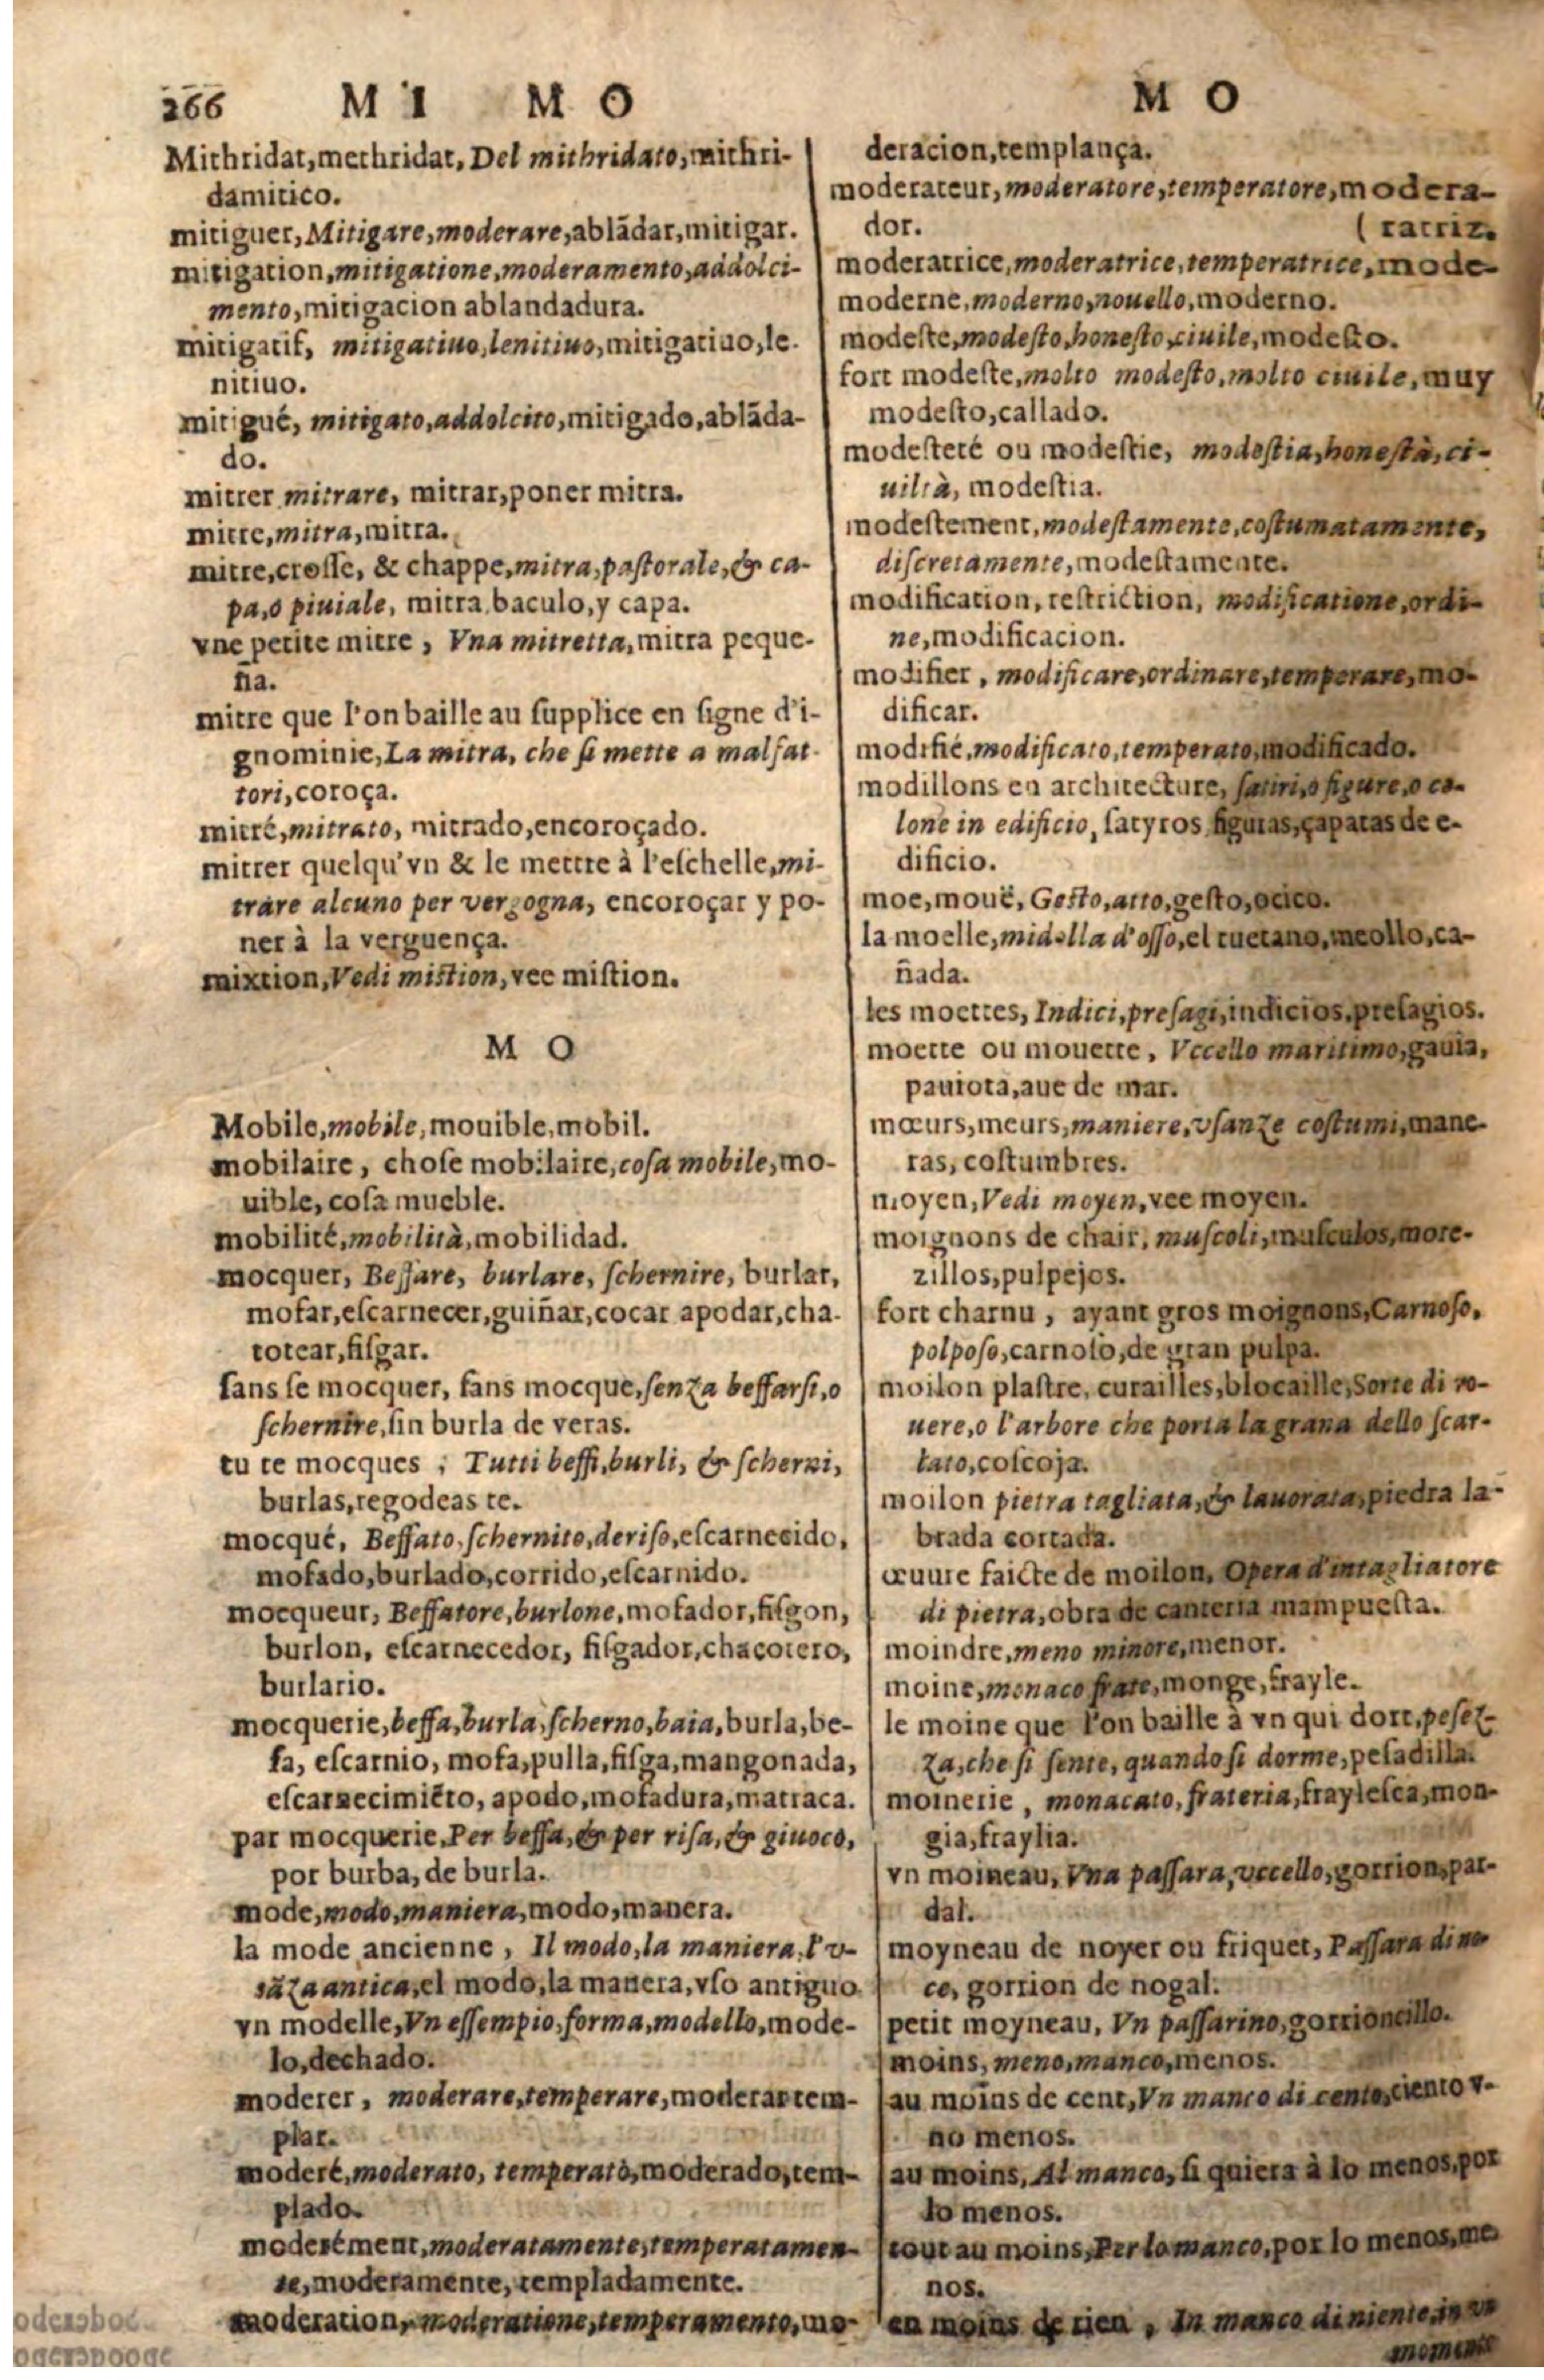 266 M I M O
Mithridat,methridat, Del mithridato,mithri-
damitico.
mitiguer,Mitigare,moderare,ablādar,mitigar.
mitigation,mitigatione,moderamento,addolci-
mento,mitigacion ablandadura.
mitigatif, mitigatiuo,lenitiuo,mitigatiuo,le-
nitiuo.
mitigué, mitigato,addolcito,mitigado,ablāda-
do.
mitrer mitrare, mitrar,poner mitra.
mitre,mitra,mitra.
mitre,crosse, & chappe,mitra,pastorale,& ca-
pa,o piuiale, mitra,baculo,y capa.
vne petite mitre , Vna mitretta,mitra peque-
ña.
mitre que l'on baille au supplice en signe d'i-
gnominie,La mitra, che si mette a malfat-
tori,coroça.
mitré,mitrato, mitrado,encoroçado.
mitrer quelqu'vn & le mettre à l'eschelle,mi-
trare alcuno per vergogna, encoroçar y po-
ner à la verguença.
mixtion,Vedi mistion,vee mistion.
M O
Mobile,mobile,mouible,mobil.
mobilaire , chose mobilaire,cosa mobile,mo-
uible,cosa mueble.
mobilité,mobilità,mobilidad.
mocquer, Beffare, burlare, schernire, burlar,
mofar,escarnecer,guiñar,cocar apodar,cha-
totear,fisgar.
sans se mocquer, sans mocque,senza beffarsi,o
schernire,sin burla de veras.
tu te mocques , Tutti beffi,burli, & scherni,
burlas,regodeas te.
mocqué, Beffato,schernito,deriso,escarnecido,
mofado,burlado,corrido,escarnido.
mocqueur, Beffatore,burlone,mofador,fisgon,
burlon, escarnecedor, fisgador,chacotero,
burlario.
mocquerie,beffa,burla,scherno,baia,burla,be-
fa, escarnio, mofa,pulla,fisga,mangonada,
escarnecimiẽto, apodo,mofadura,matraca.
par mocquerie,Per beffa,& per risa,& giuoco,
por burba, de burla.
mode,modo,maniera,modo,manera.
la mode ancienne , Il modo,la maniera,l'v-
sāza antica,el modo,la manera,vso antiguo.
vn modelle,Vn essempio,forma,modello,mode-
lo,dechado.
moderer , moderare,temperare,moderar tem-
plar.
moderé,moderato, temperato,moderado,tem-
plado.
moderément,moderatamente,temperatamen-
te,moderamente, templadamente.
moderation, moderatione,temperamento,mo-
M O
deracion,templança.
moderateur,moderatore,temperatore,modera-
dor. ( ratriz.
moderatrice,moderatrice,temperatrice,mode-
moderne,moderno,nouello,moderno.
modeste,modesto,honesto,ciuile,modesto.
fort modeste,molto modesto,molto ciuile,muy
modesto,callado.
modesteté ou modestie, modestia,honestà,ci-
uiltà, modestia.
modestement,modestamente,costumatamente,
discretamente,modestamente.
modification, restriction, modificatione,ordi-
ne,modificacion.
modifier , modificare,ordinare,temperare,mo-
dificar.
modifié,modificato,temperato,modificado.
modillons en architecture, satiri,o figure,o co-
lone in edificio, satyros figuras,çapatas de e-
dificio.
moe,mouë, Gesto,atto,gesto,ocico.
la moelle,midolla d'osso,el tuetano,meollo,ca-
ñada.
les moettes, Indici,presagi,indicios,presagios.
moette ou mouette , Vccello maritimo,gauia,
pauiota,aue de mar.
mœurs,meurs,maniere,vsanze costumi,mane-
ras, costumbres.
moyen,Vedi moyen,vee moyen.
moignons de chair, muscoli,musculos,more-
zillos,pulpejos.
fort charnu , ayant gros moignons,Carnoso,
polposo,carnoso,de gran pulpa.
moilon plastre, curailles,blocaille,Sorte di ro-
uere,o l'arbore che porta la grana dello scar-
lato,coscoja.
moilon pietra tagliata,& lauorata,piedra la-
brada cortada.
œuure faicte de moilon, Opera d'intagliatore
di pietra,obra de canteria mampuesta.
moindre,meno minore,menor.
moine,monaco frate,monge,frayle.
le moine que l'on baille à vn qui dort,pesez-
za,che si sente, quando si dorme,pesadilla.
moinerie , monacato,frateria,fraylesca,mon-
gia,fraylia.
vn moineau, Vna passara,vccello,gorrion,par-
dal.
moyneau de noyer ou friquet, Passara di no
ce, gorrion de nogal.
petit moyneau, Vn passarino,gorrioncillo.
moins, meno,manco,menos.
au moins de cent,Vn manco di cento,ciento v-
no menos.
au moins, Al manco, si quiera à lo menos,por
lo menos.
tout au moins,Per lo manco,por lo menos,me
nos.
en moins de rien , In manco di niente,in vn
momento